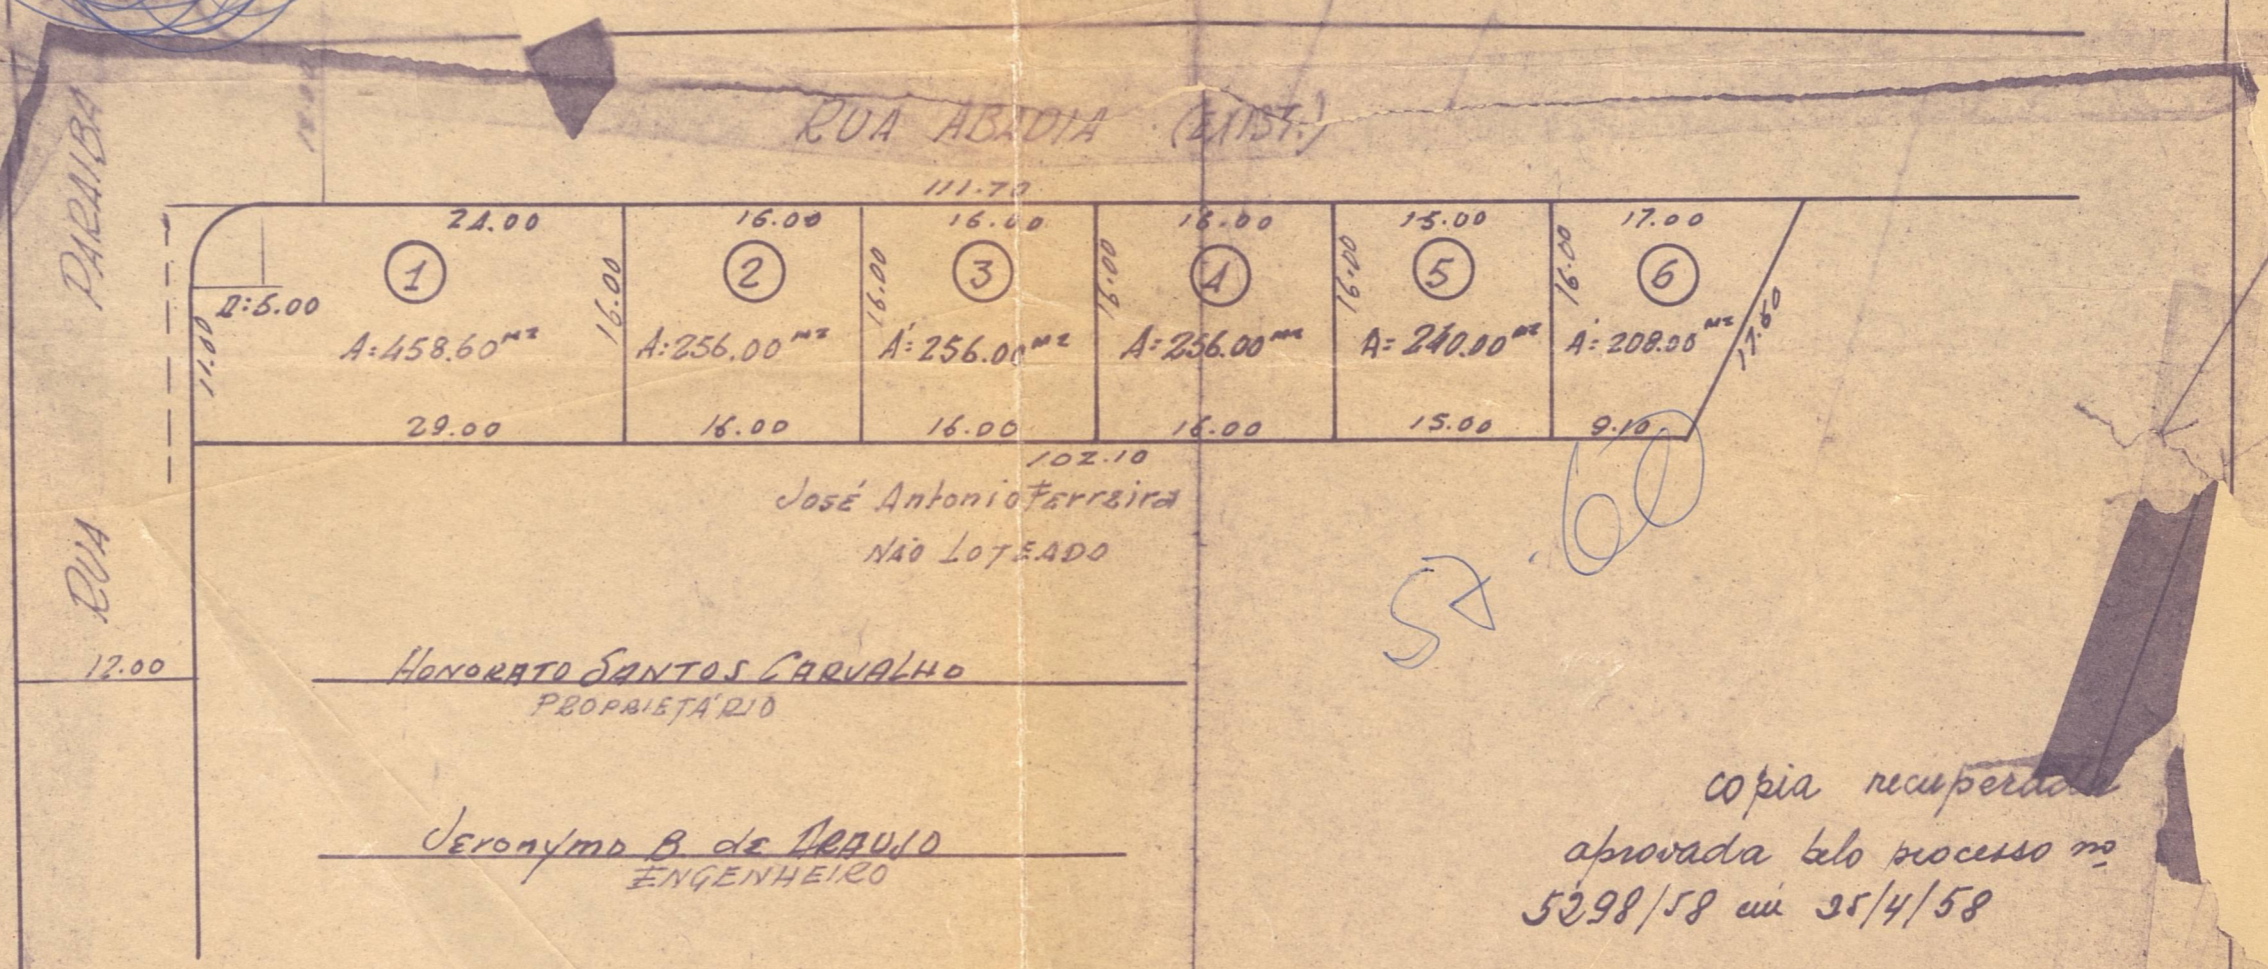 RUA ABADIA (EXIST.)
RUA PARAIBA
111.70
24.00 16.00 16.00 16.00 15.00 17.00
1 2 3 4 5 6
R:5.00
11.00 16.00 16.00 16.00 16.00 16.00 17.60
A:458.60M2 A:256.00M2 A:256.00M2 A:256.00M2 A=240.00M2 A:208.00M2
29.00 16.00 16.00 16.00 15.00 9.10
102.10
José Antonio Ferreira
NÃO LOTEADO
12.00
HONORATO SANTOS CARVALHO
PROPRIETÁRIO
Jeronymo B. de ARAUJO
ENGENHEIRO
copia recuperada
aprovada pelo processo nº
5298/58 em 25/4/58